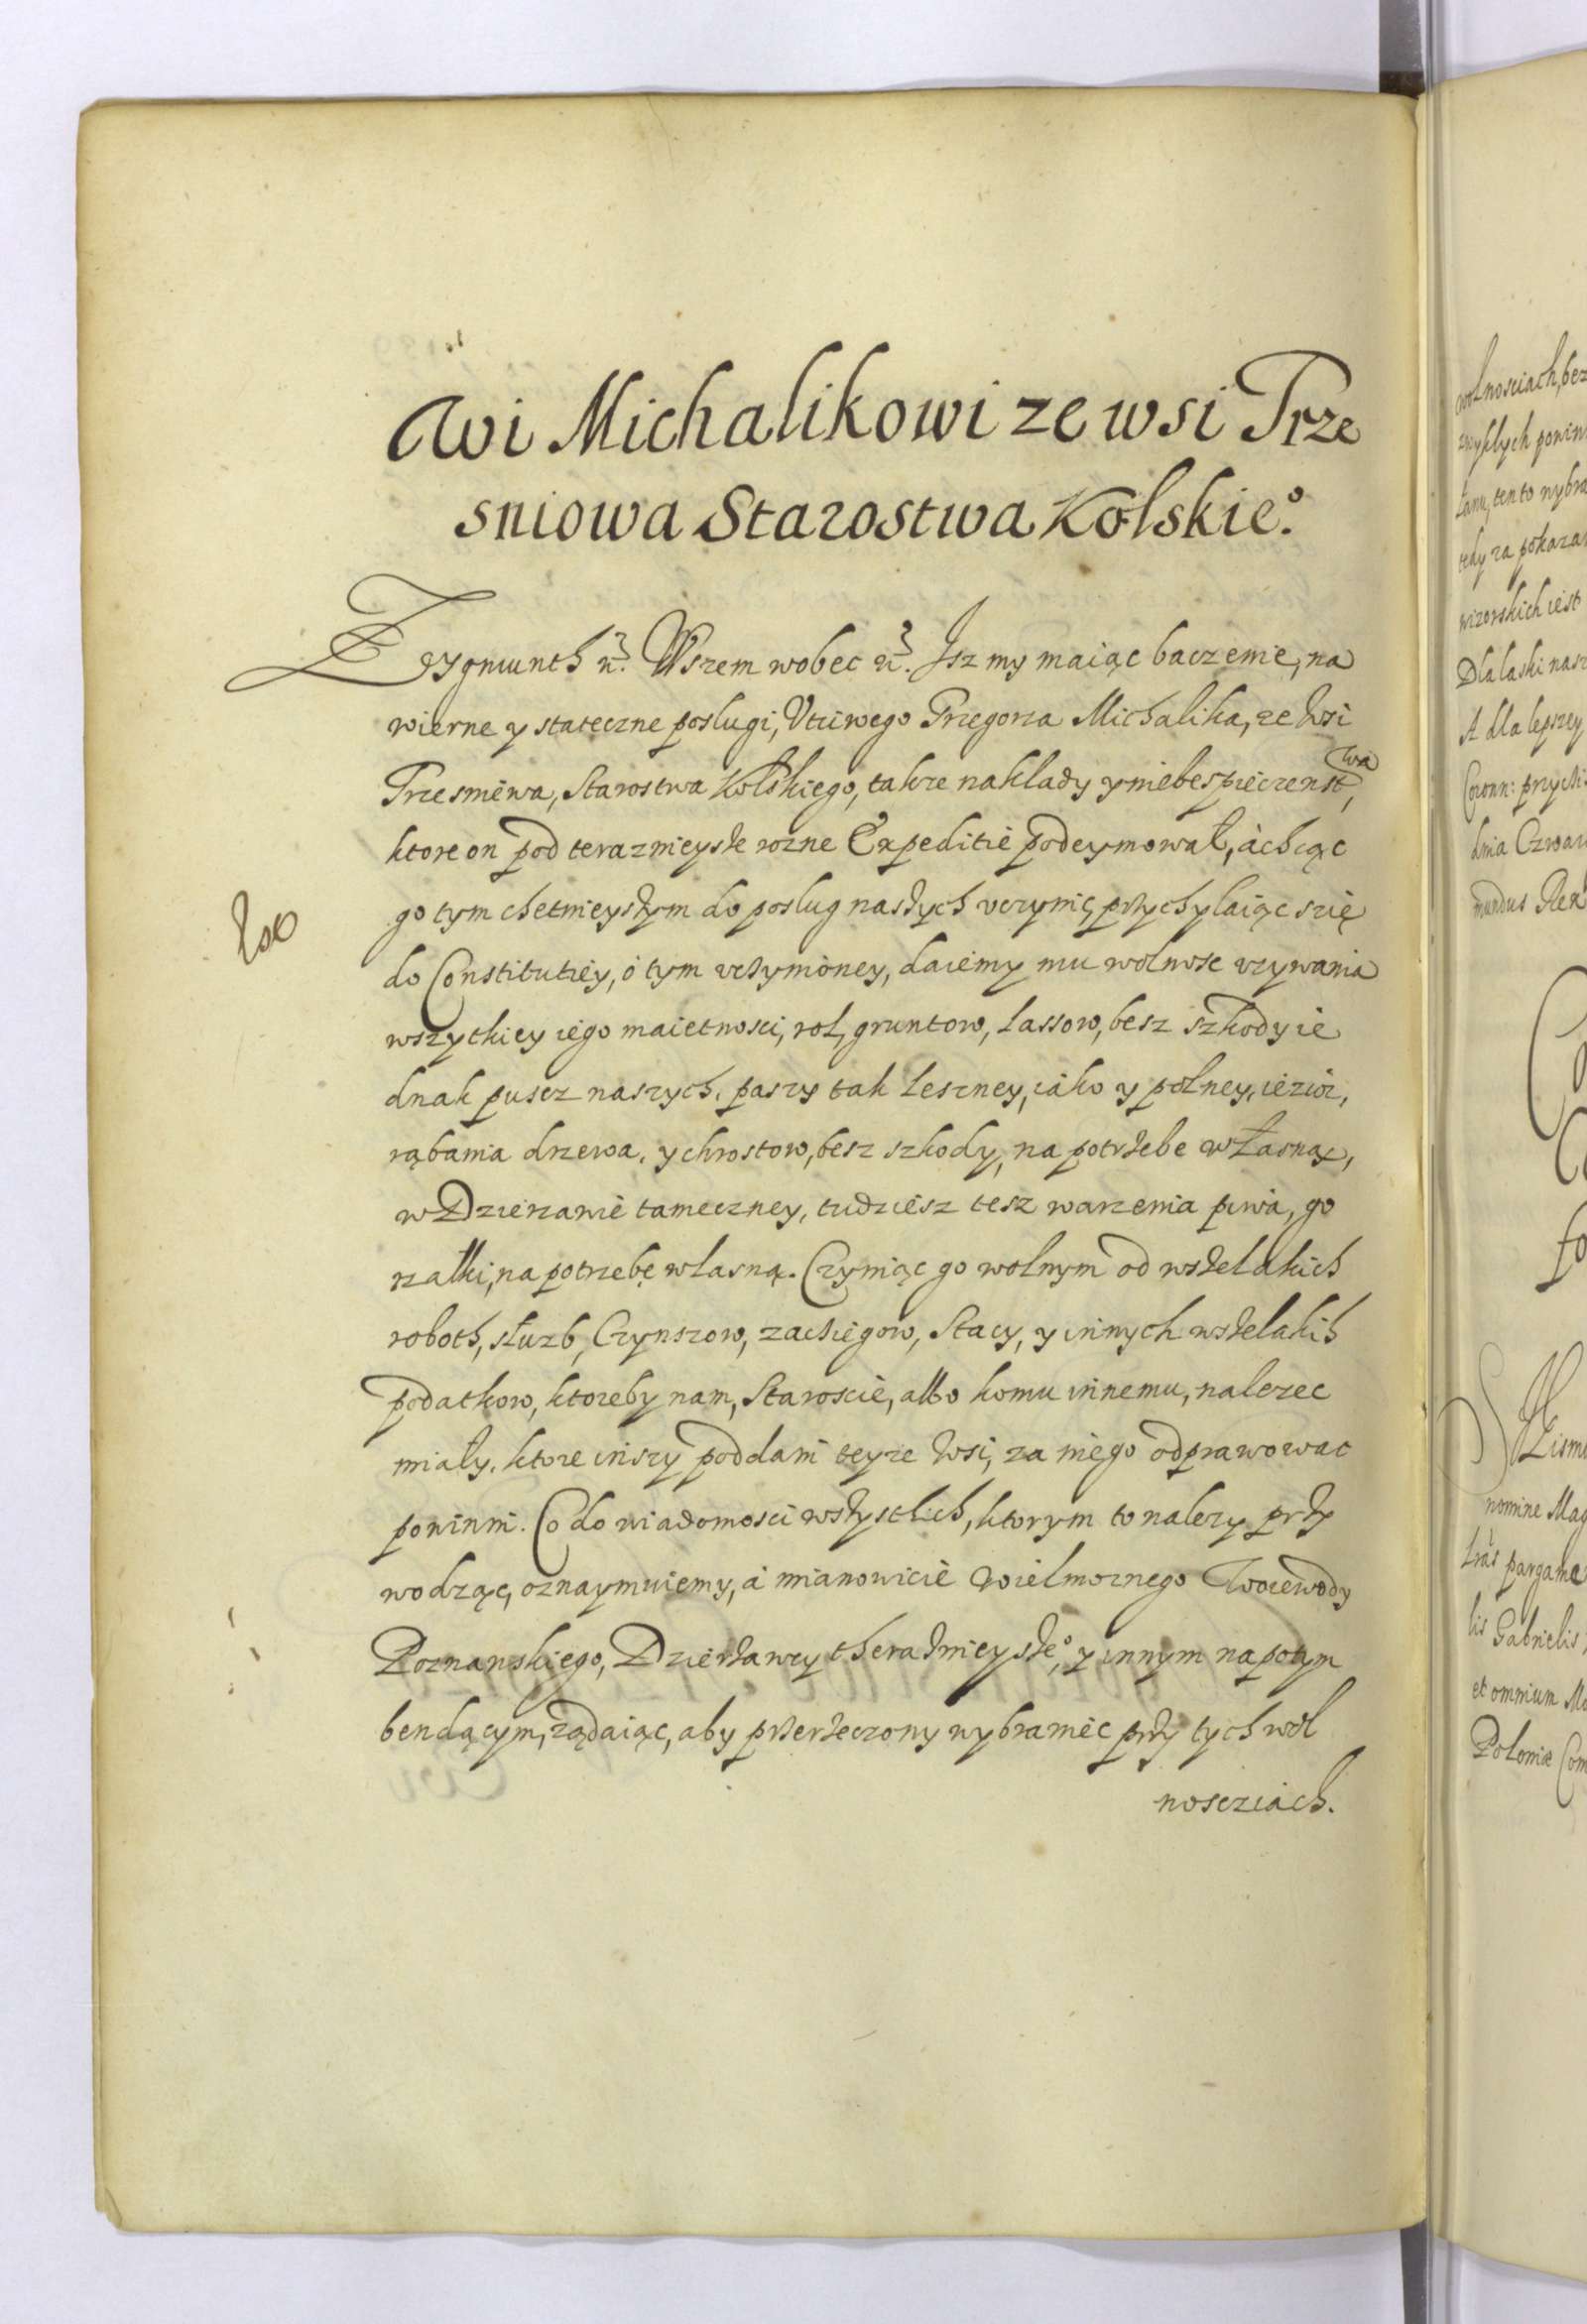 owi Michalikowi ze wsi Trze
sniowa Starostwa Kolskieº.
Zygmunth Wszem wobec Isz my maiąc baczenie, na
wierne y stateczne poslugi, Utciwego Grzegorza Michalika, ze Wsi
Trzesniewa, Starostwa Kolskiego, takze naklady y niebespieczenstwa,
ktore on pod terazmieysze rozne Expeditie podeymował, a chcąc
go tym chetnieyszym do poslug naszych uczynic, przychylaiąc szię
do Constitutiey, o tym uczynioney, daiemy mu wolnosc uzywania
wszytkiey iego maietnosci, rol, gruntow, Lassow, besz szkody ie
dnak puscz naszych, paszy tak Lesney, iako y polney, iezior,
rąbania drzewa, y chrostow, besz szkody, na potrzebe własną,
w Dzierzawie tameczney, tudziesz tesz warzenia piwa, go
rzalki, na potrzebę wlasną. Czyniąc go wolnym od wszelakich
roboth, służb, Czynszow, zaciegow, Stacy, y innych wszelakich
podatkow, ktoreby nam, Staroscie, albo komu innemu, nalezec
miały, ktore inszy poddani teyze Wsi, za niego odprawowac
powinni. Co do wiadomosci wszystkich, ktorym to nalezy przy
wodząc, oznaymuiemy, a mianowicie Wielmoznego Woiewody
Poznanskiego, Dzierzawcy therazmieyszeº, y innym napotym
bendącym, ządaiąc, aby przerzeczony wybraniec przy tych wol
noscziach.
wolnosciach, bez
zwykłych powin
Łanu, ten to wybra
tedy za pokaza
wizorskich iest
Dla laski nasz
A dla lepszey
Coronn: przycis
dnia Czwar
mundus Rex
nomine Mag
pargame
lis Gabrielis,
et omnium Mo
Poloniæ Com